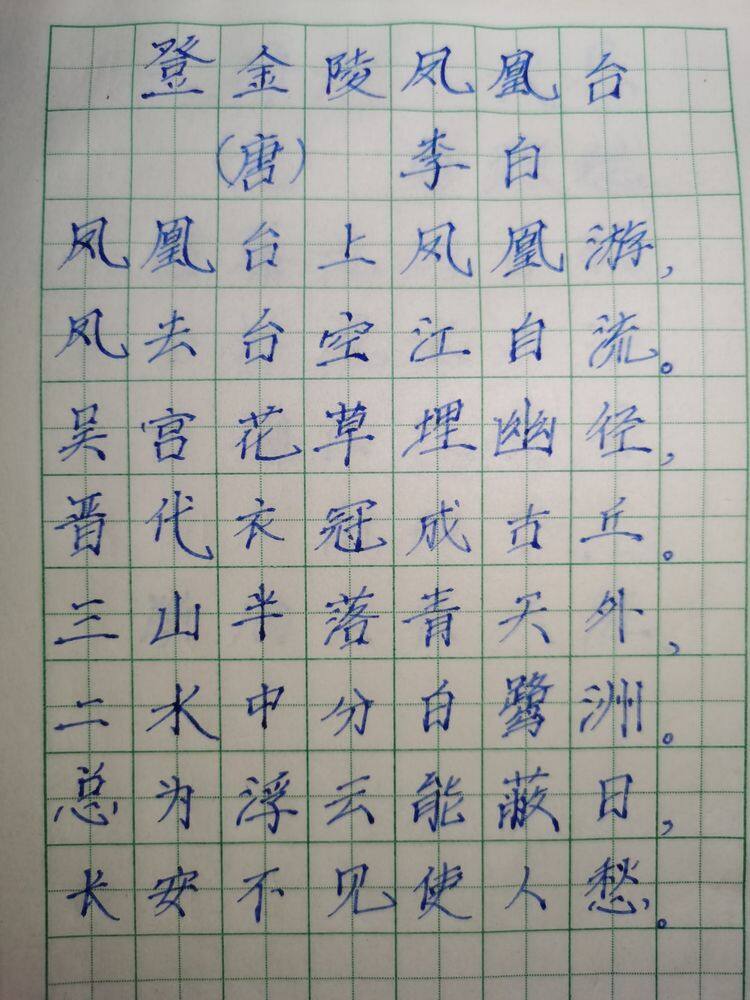 登金陵凤凰台
(唐) 李白
凤凰台上凤凰游,
凤去台空江自流。
吴宫花草埋幽径,
晋代衣冠成古丘。
三山半落青天外,
二水中分白鹭洲。
总为浮云能蔽日,
长安不见使人愁。